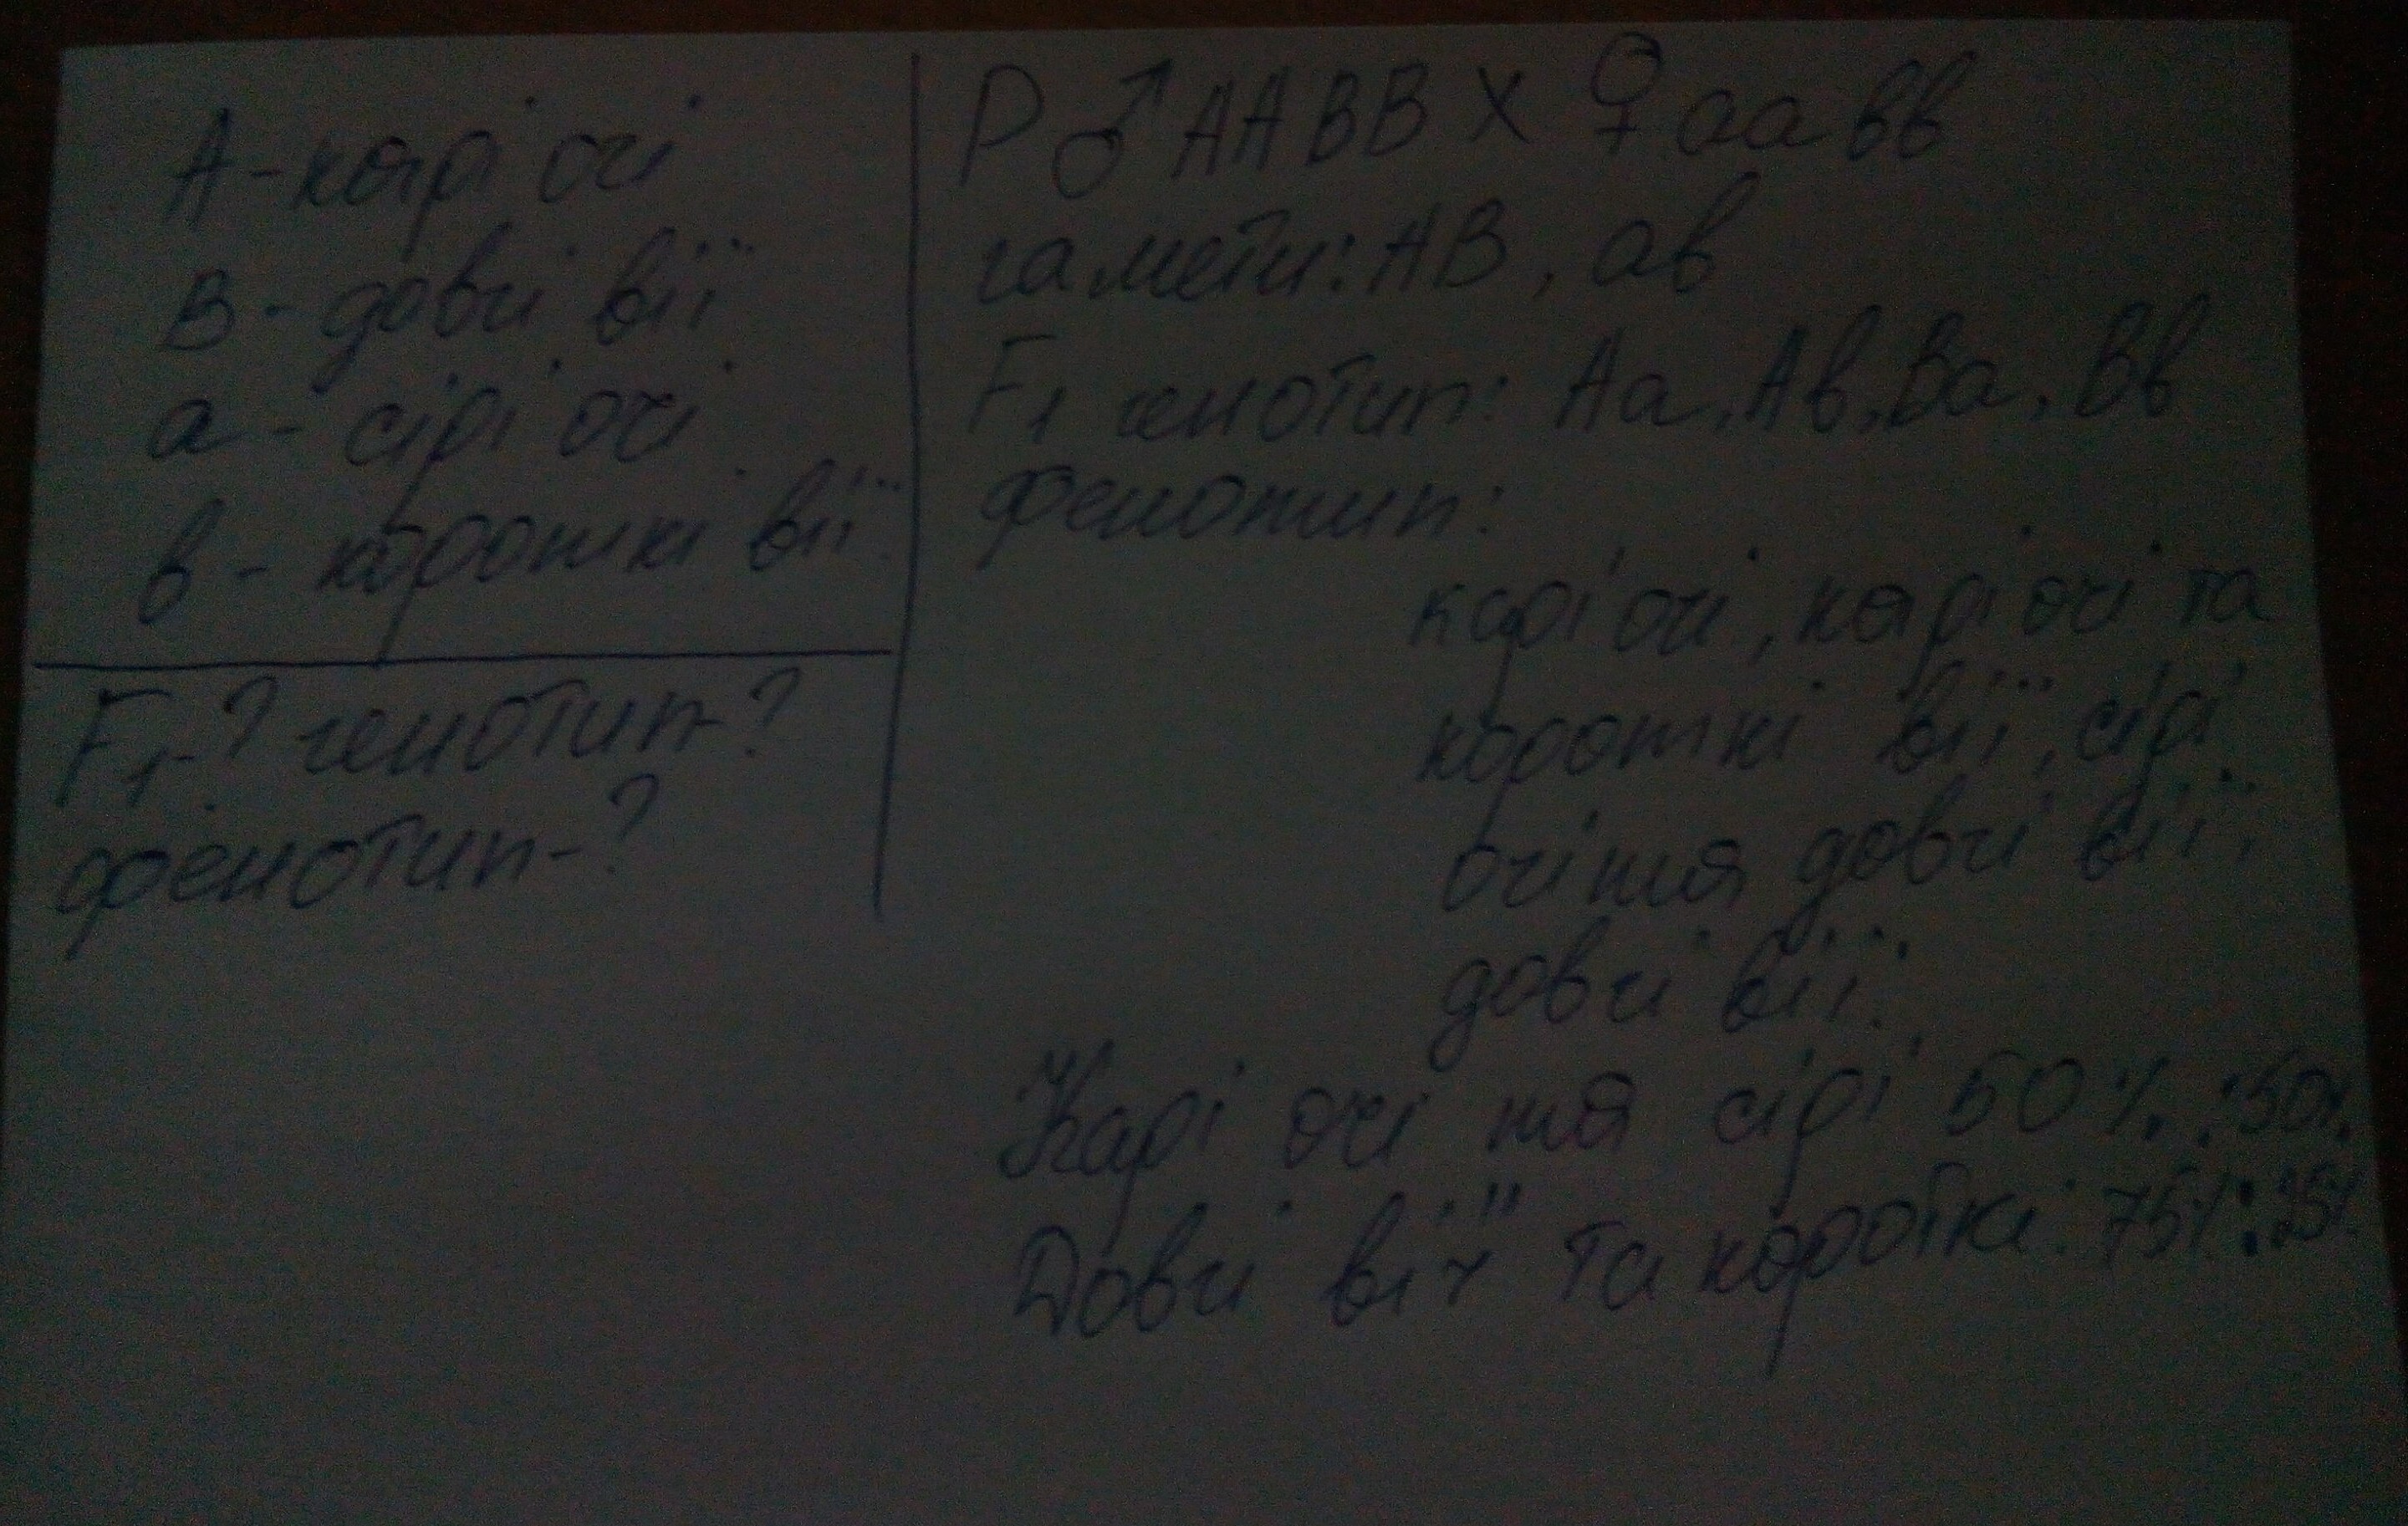 А - карі очі
В - довгі вії
а - сірі очі
в - короткі вії
F1-? генотип-?
фенотип-?
Р ♂ ААВВ х ♀ аавв
гамети: АВ, ав
F1 генотип: Аа, Ав, Ва, Вв
фенотип:
карі очі, карі очі та
короткі вії, сірі
очі та довгі вії,
довгі вії.
Карі очі та сірі 50%:50%.
Довгі вії та короткі: 75%:25%